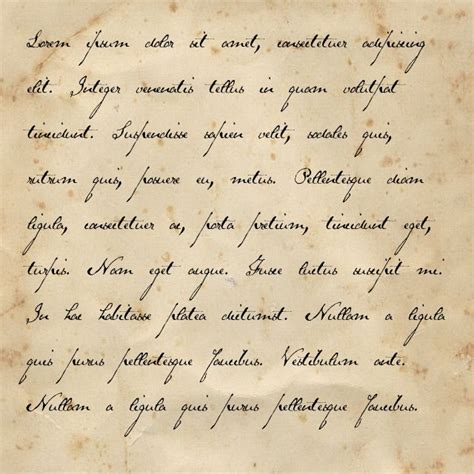 Lorem ipsum dolor sit amet, consectetuer adipiscing
elit. Integer venenatis tellus in quam volutpat
tincidunt. Suspendisse sapien velit, sodales quis,
rutrum quis, posuere eu, metus. Pellentesque diam
ligula, consectetuer ac, porta pretium, tincidunt eget,
turpis. Nam eget augue. Fusce luctus suscipit mi.
In hac habitasse platea dictumst. Nullam a ligula
quis purus pellentesque faucibus. Vestibulum ante.
Nullam a ligula quis purus pellentesque faucibus.